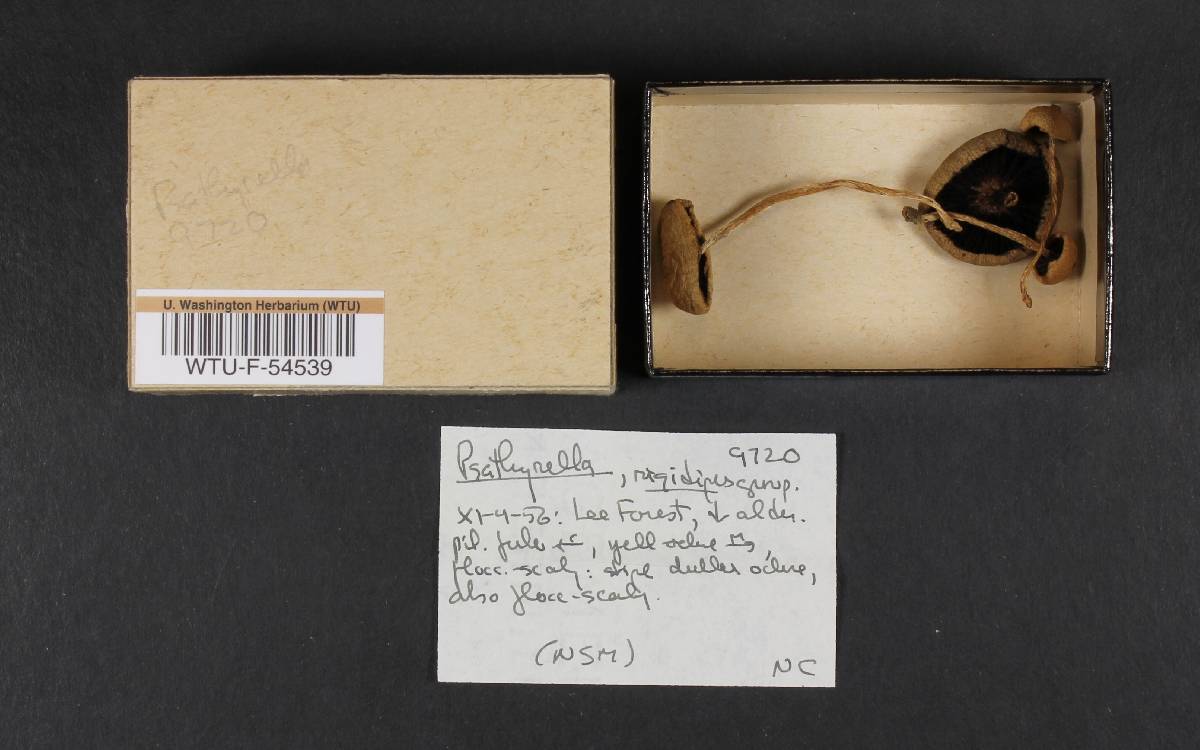 Psathyrella
9720
U. Washington Herbarium (WTU)
WTU-F-54539
9720
Psathyrella, rigidipes group.
XI-4-56: Lee Forest, alder.
pil. fulv, yell ochre
flocc.-scaly: stipe duller ochre,
also flocc-scaly.
(NSM)
NC